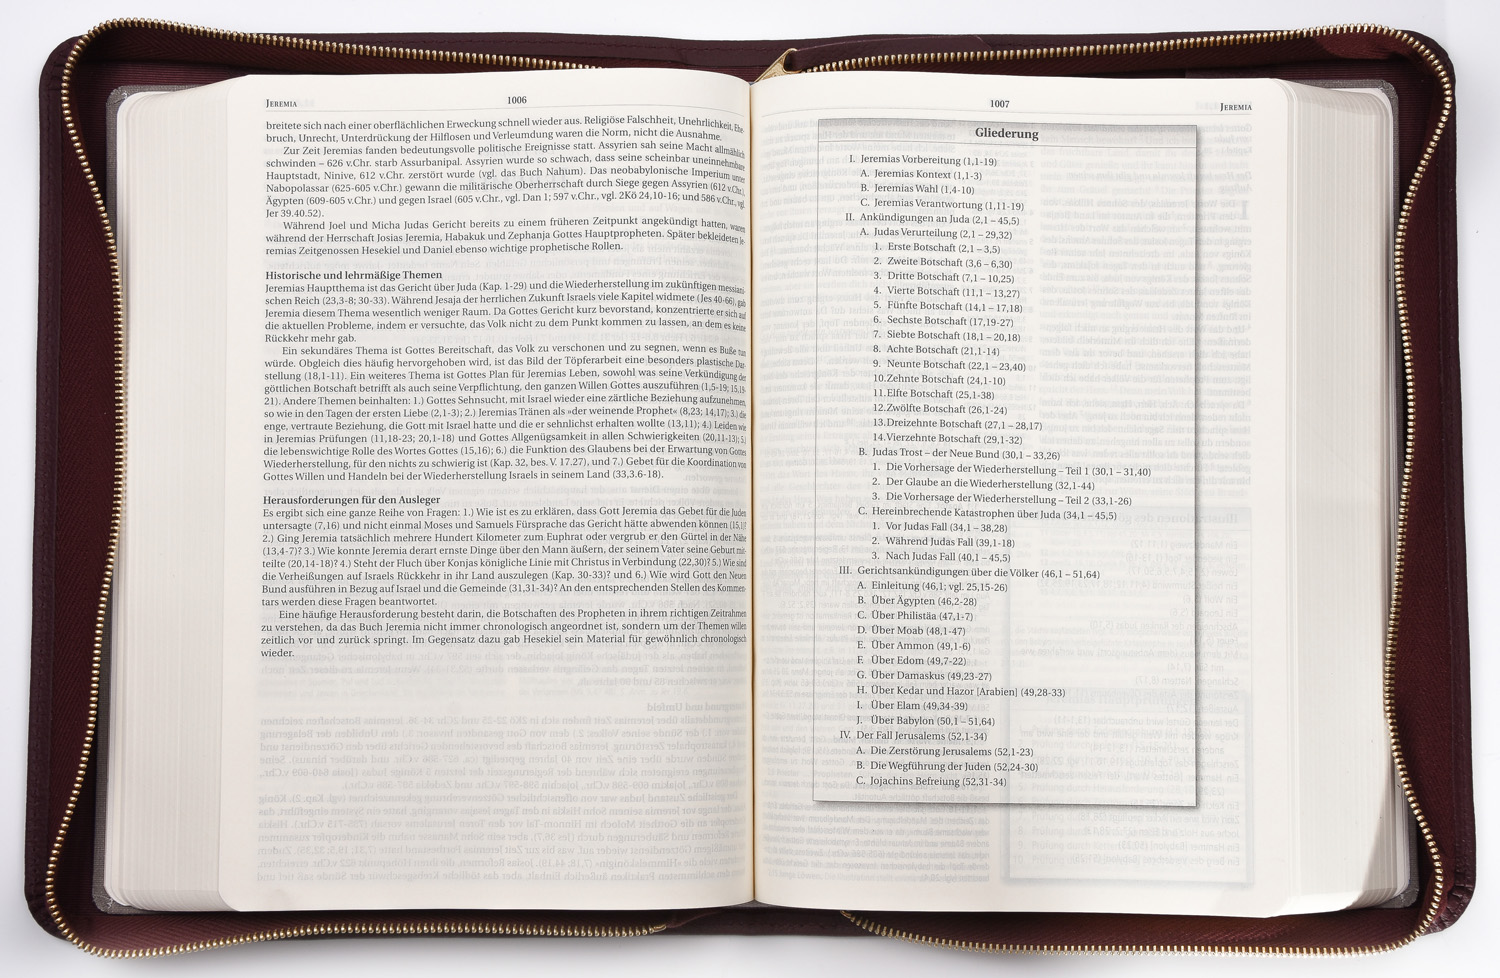 JEREMIA
1006
breitete sich nach einer oberflächlichen Erweckung schnell wieder aus. Religiöse Falschheit, Unehrlichkeit, Ehe-
bruch, Unrecht, Unterdrückung der Hilflosen und Verleumdung waren die Norm, nicht die Ausnahme.
Zur Zeit Jeremias fanden bedeutungsvolle politische Ereignisse statt. Assyrien sah seine Macht allmählich
schwinden – 626 v.Chr. starb Assurbanipal. Assyrien wurde so schwach, dass seine scheinbar uneinnehmbare
Hauptstadt, Ninive, 612 v.Chr. zerstört wurde (vgl. das Buch Nahum). Das neobabylonische Imperium unter
Nabopolassar (625-605 v.Chr.) gewann die militärische Oberherrschaft durch Siege gegen Assyrien (612 v.Chr.),
Ägypten (609-605 v.Chr.) und gegen Israel (605 v.Chr., vgl. Dan 1; 597 v.Chr., vgl. 2Kö 24,10-16; und 586 v.Chr., vgl.
Jer 39.40.52).
Während Joel und Micha Judas Gericht bereits zu einem früheren Zeitpunkt angekündigt hatten, waren
während der Herrschaft Josias Jeremia, Habakuk und Zephanja Gottes Hauptpropheten. Später bekleideten Je-
remias Zeitgenossen Hesekiel und Daniel ebenso wichtige prophetische Rollen.
Historische und lehrmäßige Themen
Jeremias Hauptthema ist das Gericht über Juda (Kap. 1-29) und die Wiederherstellung im zukünftigen messiani-
schen Reich (23,3-8; 30-33). Während Jesaja der herrlichen Zukunft Israels viele Kapitel widmete (Jes 40-66), gab
Jeremia diesem Thema wesentlich weniger Raum. Da Gottes Gericht kurz bevorstand, konzentrierte er sich auf
die aktuellen Probleme, indem er versuchte, das Volk nicht zu dem Punkt kommen zu lassen, an dem es keine
Rückkehr mehr gab.
Ein sekundäres Thema ist Gottes Bereitschaft, das Volk zu verschonen und zu segnen, wenn es Buße tun
würde. Obgleich dies häufig hervorgehoben wird, ist das Bild der Töpferarbeit eine besonders plastische Dar-
stellung (18,1-11). Ein weiteres Thema ist Gottes Plan für Jeremias Leben, sowohl was seine Verkündigung der
göttlichen Botschaft betrifft als auch seine Verpflichtung, den ganzen Willen Gottes auszuführen (1,5-19; 15,19-
21). Andere Themen beinhalten: 1.) Gottes Sehnsucht, mit Israel wieder eine zärtliche Beziehung aufzunehmen,
so wie in den Tagen der ersten Liebe (2,1-3); 2.) Jeremias Tränen als »der weinende Prophet« (8,23; 14,17); 3.) die
enge, vertraute Beziehung, die Gott mit Israel hatte und die er sehnlichst erhalten wollte (13,11); 4.) Leiden wie
in Jeremias Prüfungen (11,18-23; 20,1-18) und Gottes Allgenügsamkeit in allen Schwierigkeiten (20,11-13); 5.)
die lebenswichtige Rolle des Wortes Gottes (15,16); 6.) die Funktion des Glaubens bei der Erwartung von Gottes
Wiederherstellung, für den nichts zu schwierig ist (Kap. 32, bes. V. 17.27), und 7.) Gebet für die Koordination von
Gottes Willen und Handeln bei der Wiederherstellung Israels in seinem Land (33,3.6-18).
Herausforderungen für den Ausleger
Es ergibt sich eine ganze Reihe von Fragen: 1.) Wie ist es zu erklären, dass Gott Jeremia das Gebet für die Juden
untersagte (7,16) und nicht einmal Moses und Samuels Fürsprache das Gericht hätte abwenden können (15,1)?
2.) Ging Jeremia tatsächlich mehrere Hundert Kilometer zum Euphrat oder vergrub er den Gürtel in der Nähe
(13,4-7)? 3.) Wie konnte Jeremia derart ernste Dinge über den Mann äußern, der seinem Vater seine Geburt mit-
teilte (20,14-18)? 4.) Steht der Fluch über Konjas königliche Linie mit Christus in Verbindung (22,30)? 5.) Wie sind
die Verheißungen auf Israels Rückkehr in ihr Land auszulegen (Kap. 30-33)? und 6.) Wie wird Gott den Neuen
Bund ausführen in Bezug auf Israel und die Gemeinde (31,31-34)? An den entsprechenden Stellen des Kommen-
tars werden diese Fragen beantwortet.
Eine häufige Herausforderung besteht darin, die Botschaften des Propheten in ihrem richtigen Zeitrahmen
zu verstehen, da das Buch Jeremia nicht immer chronologisch angeordnet ist, sondern um der Themen willen
zeitlich vor und zurück springt. Im Gegensatz dazu gab Hesekiel sein Material für gewöhnlich chronologisch
wieder.
1007
JEREMIA
Gliederung
I. Jeremias Vorbereitung (1,1-19)
A. Jeremias Kontext (1,1-3)
B. Jeremias Wahl (1,4-10)
C. Jeremias Verantwortung (1,11-19)
II. Ankündigungen an Juda (2,1 – 45,5)
A. Judas Verurteilung (2,1 – 29,32)
1. Erste Botschaft (2,1 – 3,5)
2. Zweite Botschaft (3,6 – 6,30)
3. Dritte Botschaft (7,1 – 10,25)
4. Vierte Botschaft (11,1 – 13,27)
5. Fünfte Botschaft (14,1 – 17,18)
6. Sechste Botschaft (17,19-27)
7. Siebte Botschaft (18,1 – 20,18)
8. Achte Botschaft (21,1-14)
9. Neunte Botschaft (22,1 – 23,40)
10.Zehnte Botschaft (24,1-10)
11.Elfte Botschaft (25,1-38)
12.Zwölfte Botschaft (26,1-24)
13.Dreizehnte Botschaft (27,1 – 28,17)
14.Vierzehnte Botschaft (29,1-32)
B. Judas Trost – der Neue Bund (30,1 – 33,26)
1. Die Vorhersage der Wiederherstellung – Teil 1 (30,1 – 31,40)
2. Der Glaube an die Wiederherstellung (32,1-44)
3. Die Vorhersage der Wiederherstellung – Teil 2 (33,1-26)
C. Hereinbrechende Katastrophen über Juda (34,1 – 45,5)
1. Vor Judas Fall (34,1 – 38,28)
2. Während Judas Fall (39,1-18)
3. Nach Judas Fall (40,1 – 45,5)
III. Gerichtsankündigungen über die Völker (46,1 – 51,64)
A. Einleitung (46,1; vgl. 25,15-26)
B. Über Ägypten (46,2-28)
C. Über Philistäa (47,1-7)
D. Über Moab (48,1-47)
E. Über Ammon (49,1-6)
F. Über Edom (49,7-22)
G. Über Damaskus (49,23-27)
H. Über Kedar und Hazor [Arabien] (49,28-33)
I. Über Elam (49,34-39)
J. Über Babylon (50,1 – 51,64)
IV. Der Fall Jerusalems (52,1-34)
A. Die Zerstörung Jerusalems (52,1-23)
B. Die Wegführung der Juden (52,24-30)
C. Jojachins Befreiung (52,31-34)